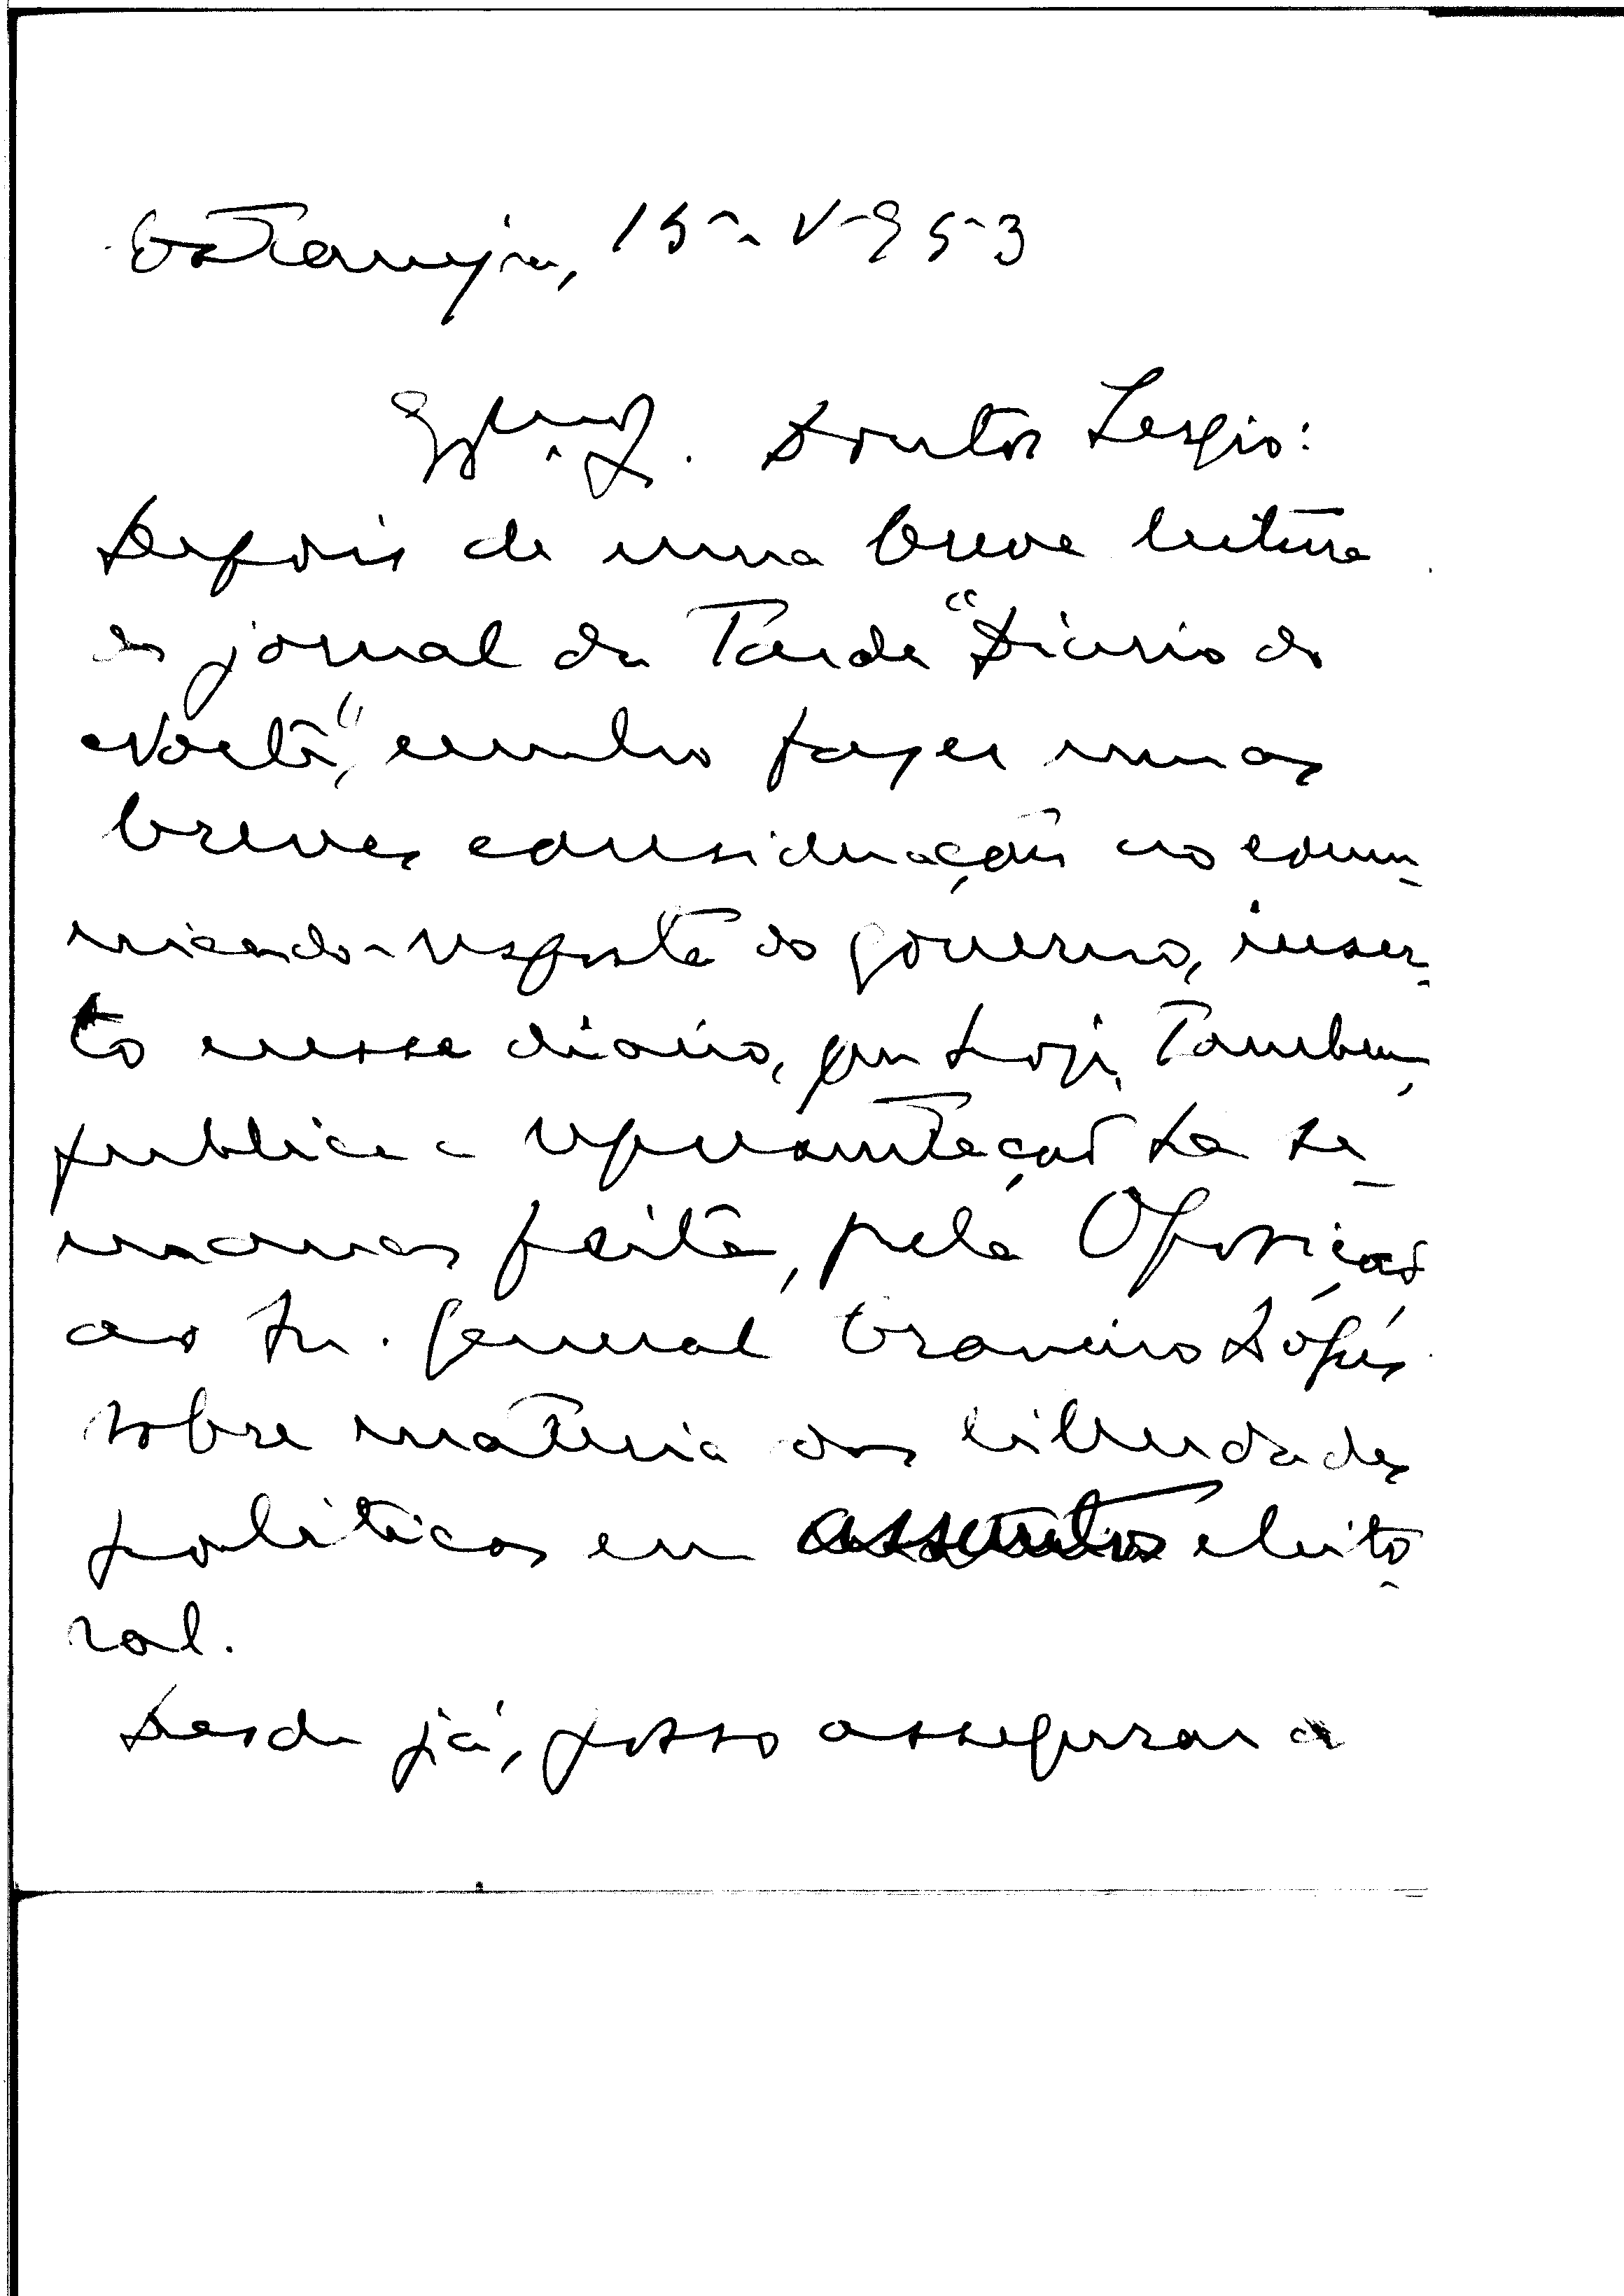 Estarreja, 15-V-953
Doutor Sergio:
Depois de uma breve leitura
do jornal da Tarde "Diario do
Norte", venho fazer umas
breves considerações ao comu-
nicado-resposta do governo, inser-
to nesse diário, que hoje, Tambem,
publica a representação há se-
manas feita, pela Oposição
ao Sr. General Craveiro Lópes
sobre materia das liberdades
politicas em assuntos eleito-
ral.
Desde já, posso assegurar a